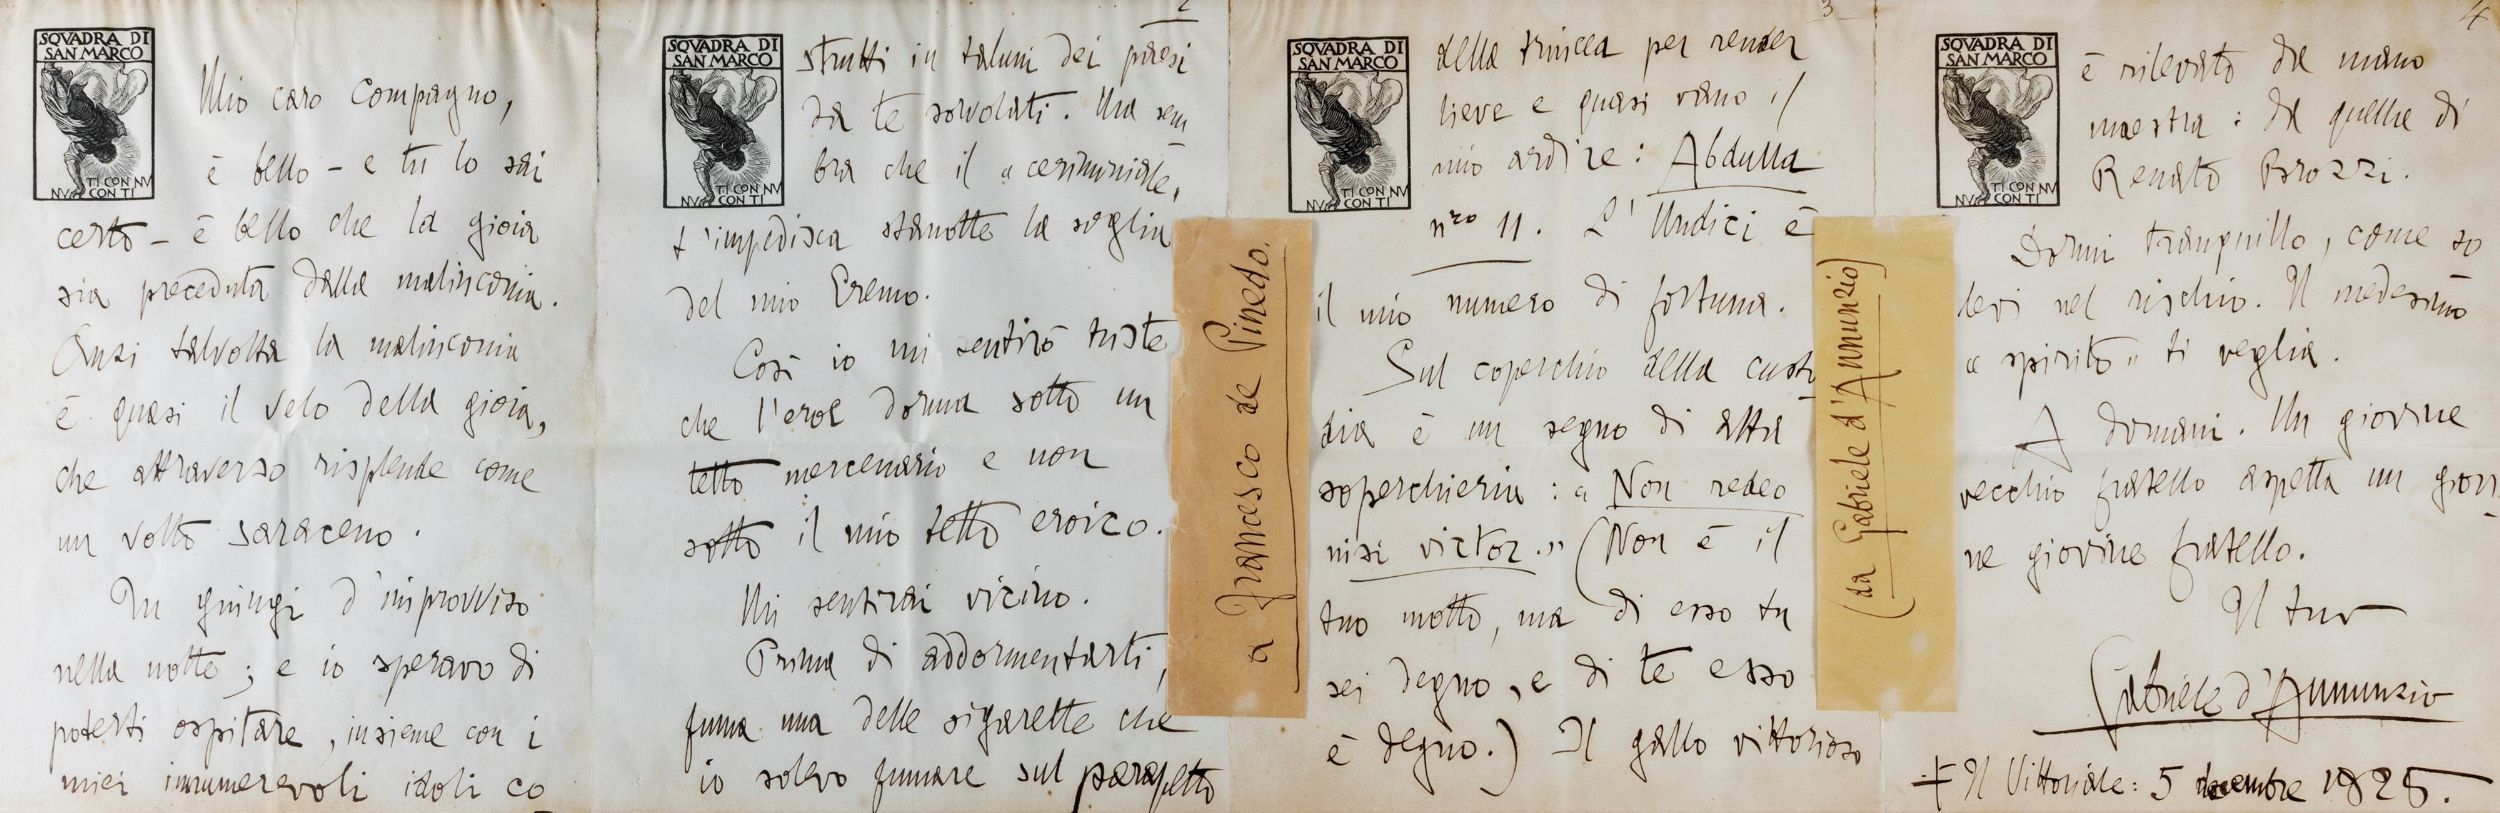 SQVADRA DI
SAN MARCO
TI CON NV
NV CON TI
Mio caro Compagno,
è bello – e tu lo sai
certo – è bello che la gioia
sia preceduta dalla malinconia.
Anzi talvolta la malinconia
è quasi il velo della gioia,
che attraverso risplende come
un volto saraceno.
Tu giungi d'improvviso
nella notte; e io speravo di
poterti ospitare, insieme con i
miei innumerevoli idoli co
2
SQVADRA DI
SAN MARCO
TI CON NV
NV CON TI
strutti in taluni dei paesi
da te sorvolati. Ma sem
bra che il « cerimoniale »
t'impedisca stanotte la soglia
del mio Eremo.
Così io mi sentirò triste
che l'eroe dorma sotto un
tetto mercenario e non
sotto il mio tetto eroico.
Mi sentirai vicino.
Prima di addormentarti,
fuma una delle sigarette che
io solevo fumare sul parapetto
a Francesco de Pinedo.
3
SQVADRA DI
SAN MARCO
TI CON NV
NV CON TI
della trincea per render
lieve e quasi vano il
mio ardire: Abdulla
nro 11. L'Undici è
il mio numero di fortuna.
Sul coperchio della custo
dia è un segno di alta
soperchieria: « Non redeo
nisi victor.» (Non è il
tuo motto, ma di esso tu
sei degno, e di te esso
è degno.) Il gallo vittorioso
(da Gabriele d'Annunzio)
4
SQVADRA DI
SAN MARCO
TI CON NV
NV CON TI
è rilevato da mano
maestra: da quella di
Renato Brozzi.
Dormi tranquillo, come so
levi nel rischio. Il medesimo
« spirito » ti veglia.
A domani. Un giovine
vecchio fratello aspetta un giovi
ne giovine fratello.
Il tuo
Gabriele d'Annunzio
Il Vittoriale: 5 decembre 1925.